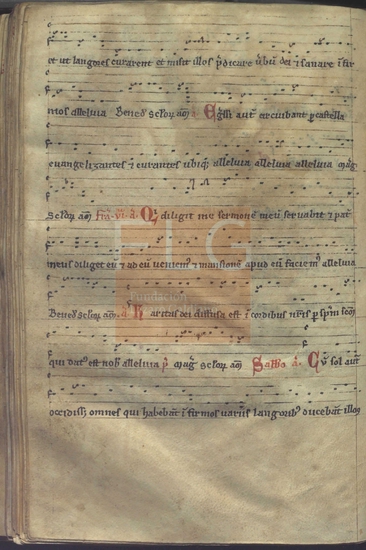 et ut langores curarent et misit illos p̄dicare v̄bū dei ⁊ sanare īfir
mos alleluia Bened̄ sclor̄ am̄ a. Egssi aut̄ circuibant p castella
euangelizantes ⁊ curantes ubiq; alleluia alleluia alleluia mag̃
sclor̄ am̄ Fr̄a .vi. a. Q̇ diligit me sermonē meū seruabit ⁊ pat̄
meus diliget eū ⁊ ad eū veniem⁹ ⁊ mansionē apud eum faciem⁹ alleluia
Bened̄ sclor̄ am̄ a. Karitas dei diffusa est ī cordibus n̄ris p sp̄m sc̄m
qui dat⁹ est nob̄ alleluia p̄ mag̃ sclor̄ am̄ Sabb̄o a. Cū sol aut̄
occidiss; omnes qui habebāt īfirmos variis langorib⁹ ducebāt illos
FLG
fundación